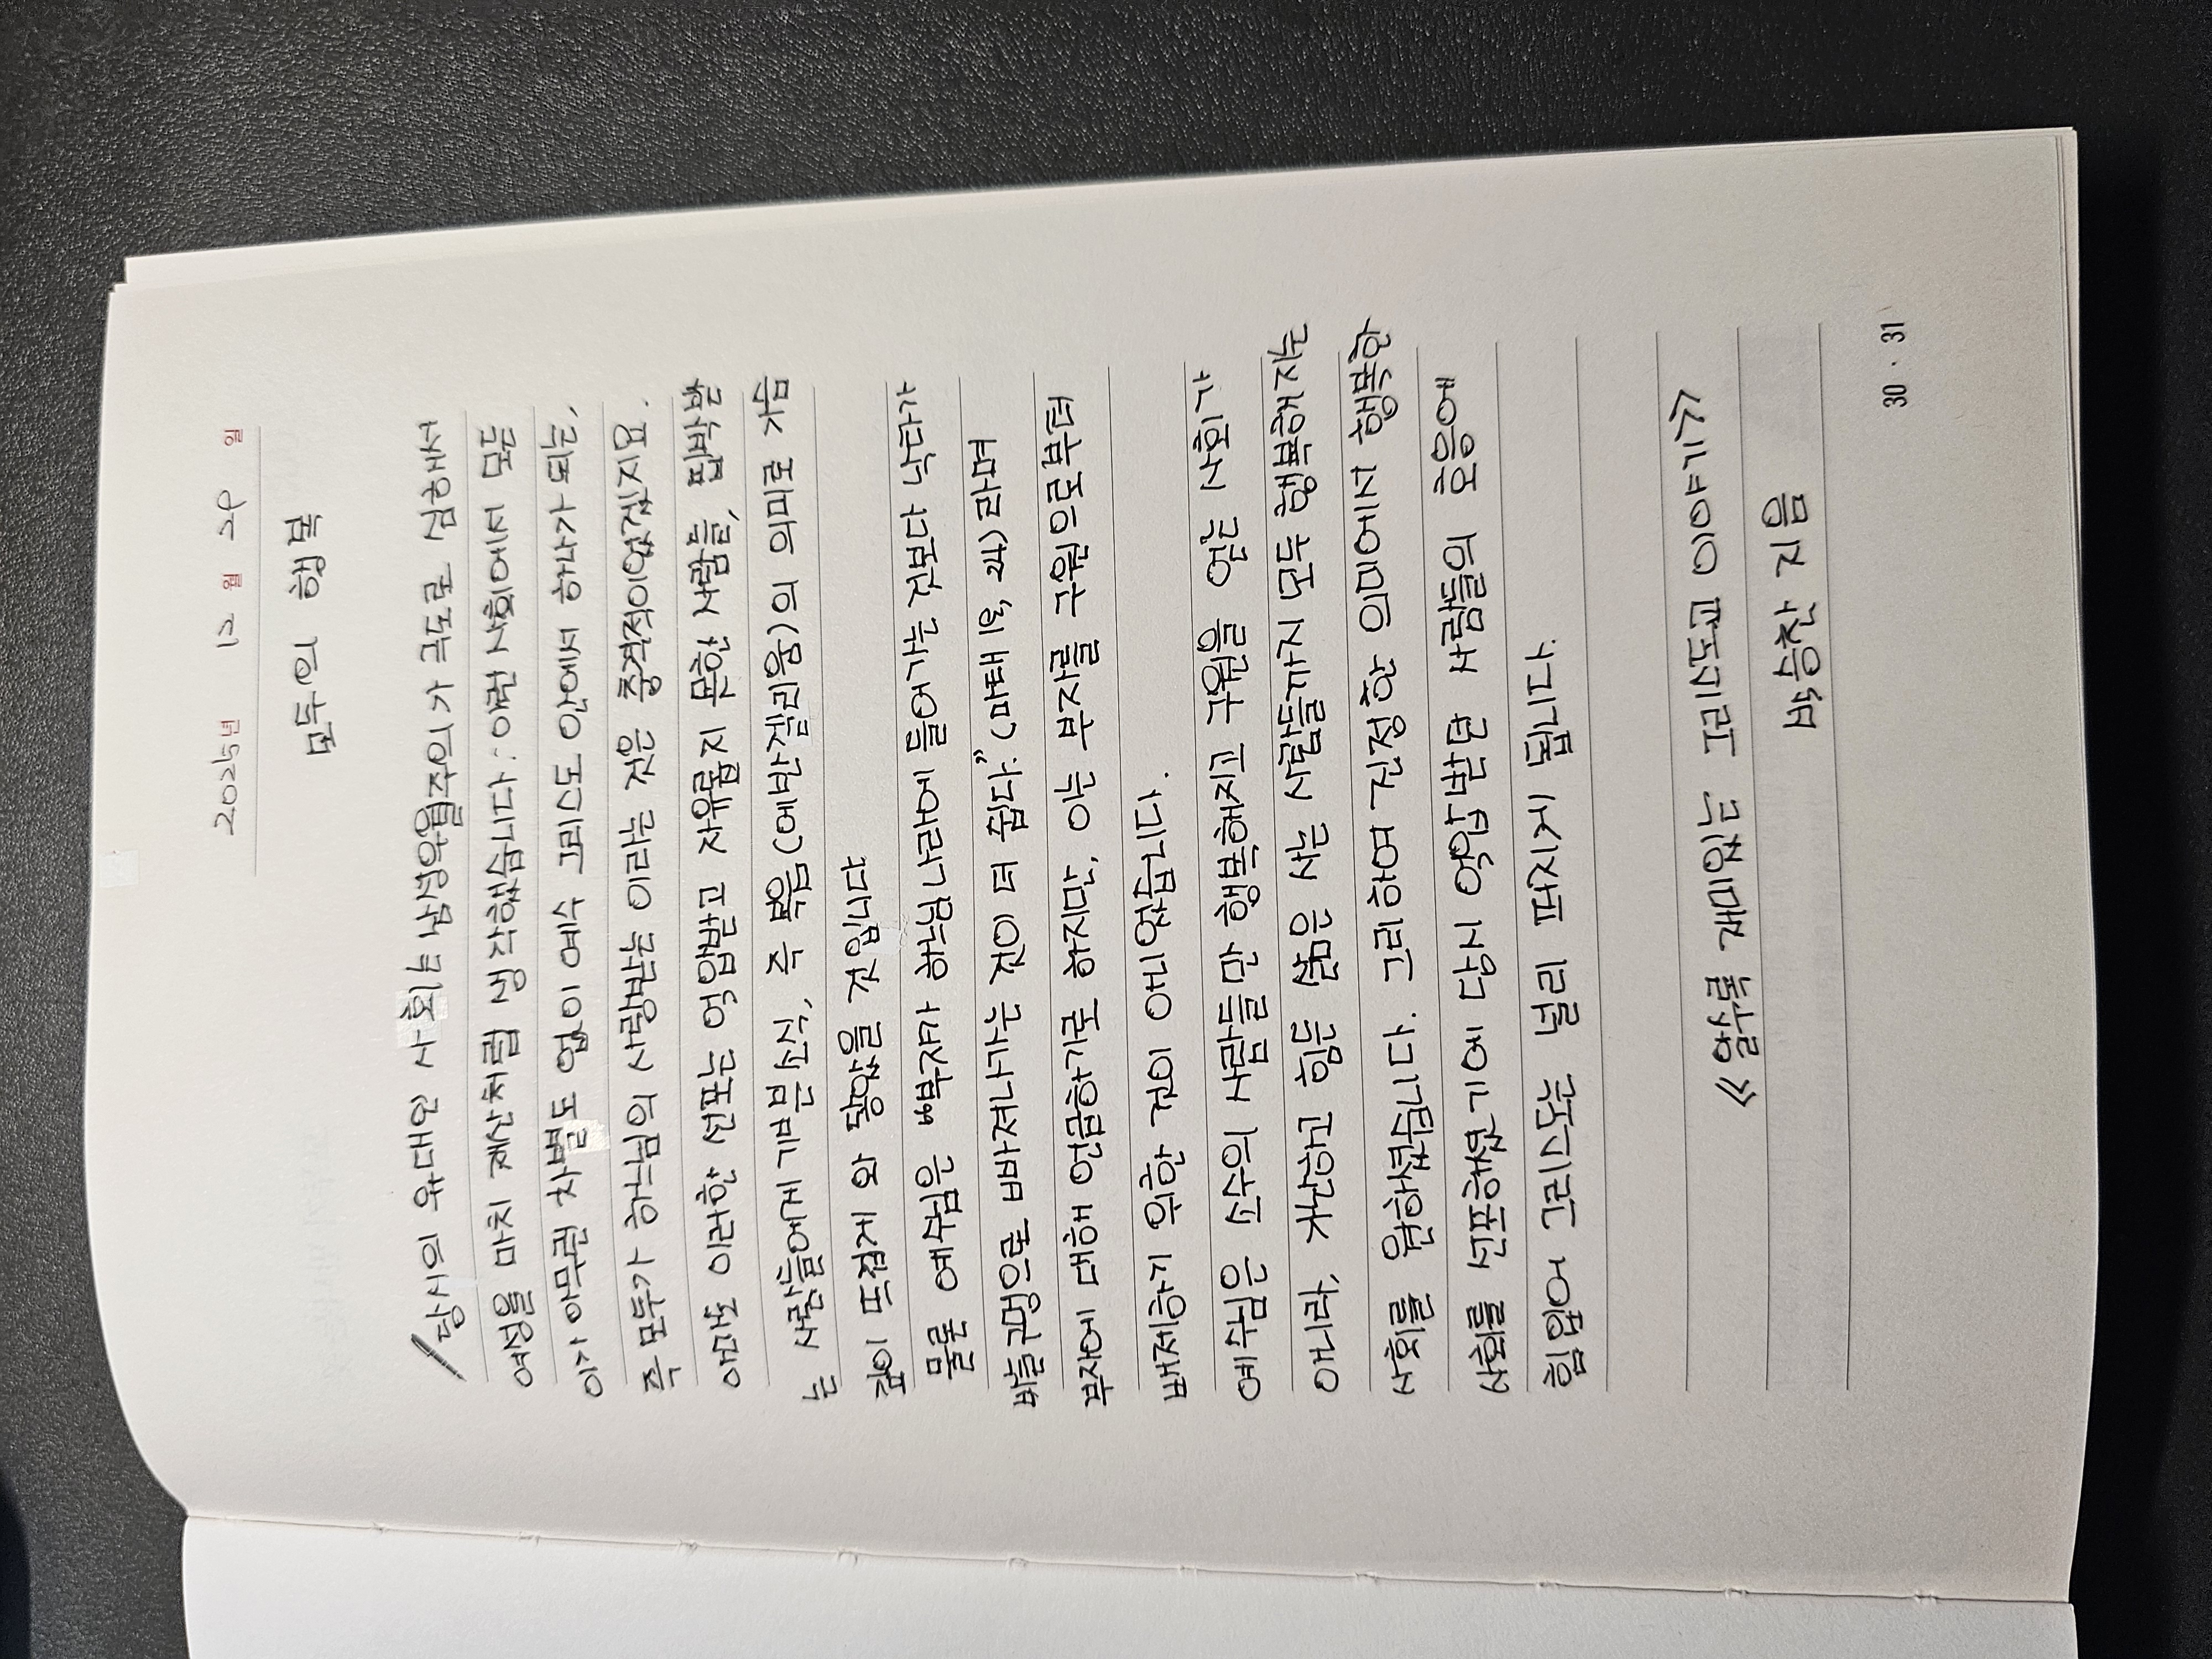 2025년 12월 29일
모두의 행복
당시의 유대인 사회는 남성우월주의가 극도로 심해서
여성을 마치 재산처럼 생각했습니다: 이런 사회에서 모든
이가 아무런 차별도 없이 예수 그리스도 안에서 하나가 되는,
즉 모두가 하느님의 사랑받는 이라는 것은 충격적이었겠지요.
아마도 이러한 선포는 억압받고 자유롭지 못한 사람들, 핍박받
는 사람들에게 기쁜 소식, 즉 복음(에반겔리움)의 의미로 가슴
깊이 뜨겁게 와 닿았을 것입니다
물론 예수님은 "부자가 하느님 나라에 들어가는 것보다 낙타가
바늘구멍으로 빠져나가는 것이 더 쉽다."(마태 19, 24)라며
부자에 대해 언급하기로 하지만, 이는 부자를 구원으로부터
배제하기 위한 것이 아니었습니다.
예수님은 소수의 사람들만 행복해지고 구원을 얻는 사회가
아니라, 가난하고 힘든 삶은 사는 사람들까지 모두 행복해지는
사회를 원하셨습니다. 그리하여 진정한 의미에서 행복한
사회를 선포하셨기에 당시 억압받던 사람들의 호응에
힘입어 그리스도교는 널리 퍼지게 됩니다.
《알수록 재미있는 그리스도교 이야기》
30 · 31